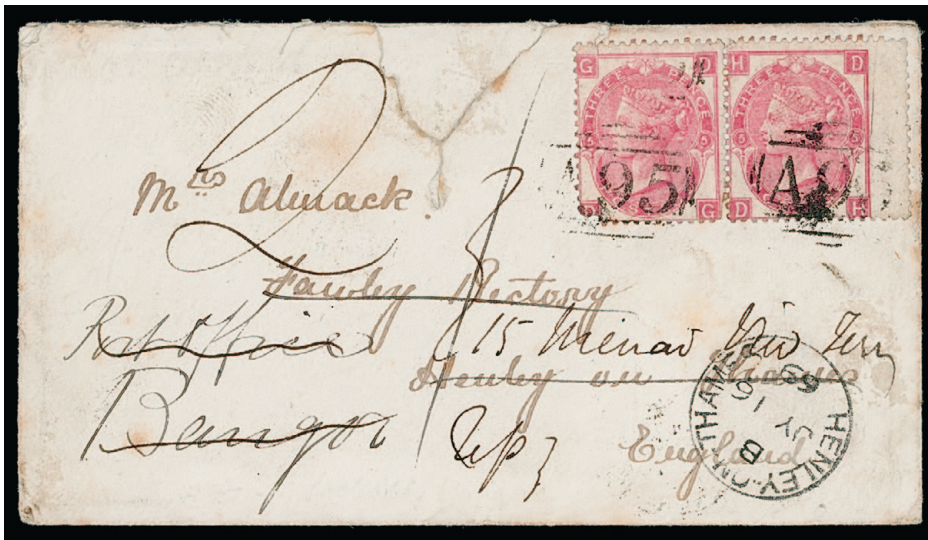 G G
THREE PENCE
5 5
D G
H D
THREE PENCE
5 5
D H
A95
A9
2
Mrs Almack.
Fawley Rectory
Post Office
15 Menai View Terr
Henley on Thames
Bangor
Up
England
HENLEY-ON-THAMES
B
JY 16
69